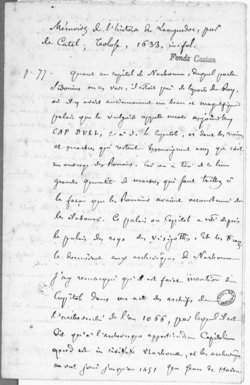 Mémoires de l'histoire de Languedoc, par
de Catel, Tolose, 1633, in-fol.
Fonds Castan
p. 77. Quant au capitol de Narbonne, duquel parle
Sidonius en ces vers, il estoit près de la porte du Roy,
où il y avoit anciennement un beau et magnifique
palais que le vulgaire appelle encore aujourd'huy
CAP DUEL, c.à.d. le Capitol, et dont les ruines
et marbres qui restent tesmoignent assez que c'estoit
un ouvrage des Romains. Car on a tiré de ce lieu
grande quantité de marbres, qui sont taillez à
la façon que les Romains avoient accoustumé de
les élabourer. Ce palais ou Capitol a esté depuis
le palais des roys des Visigotts, et les Roys
le donnèrent aux archevesques de Narbonne.
J'ay remarqué qu'il est faite mention du
Capitol dans un acte des archifs de
l'archevesché de l'an 1066, par lequel il est
dit qu'à l'archevesque appartiendra Capitolium
quod est in civitate Narbona, et les archevesques
en ont joui jusqu'en 1451 que Jean de